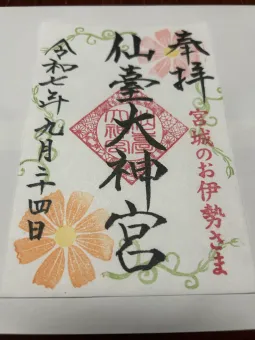 奉拝
宮城のお伊勢さま
仙臺大神宮
令和七年九月二十四日